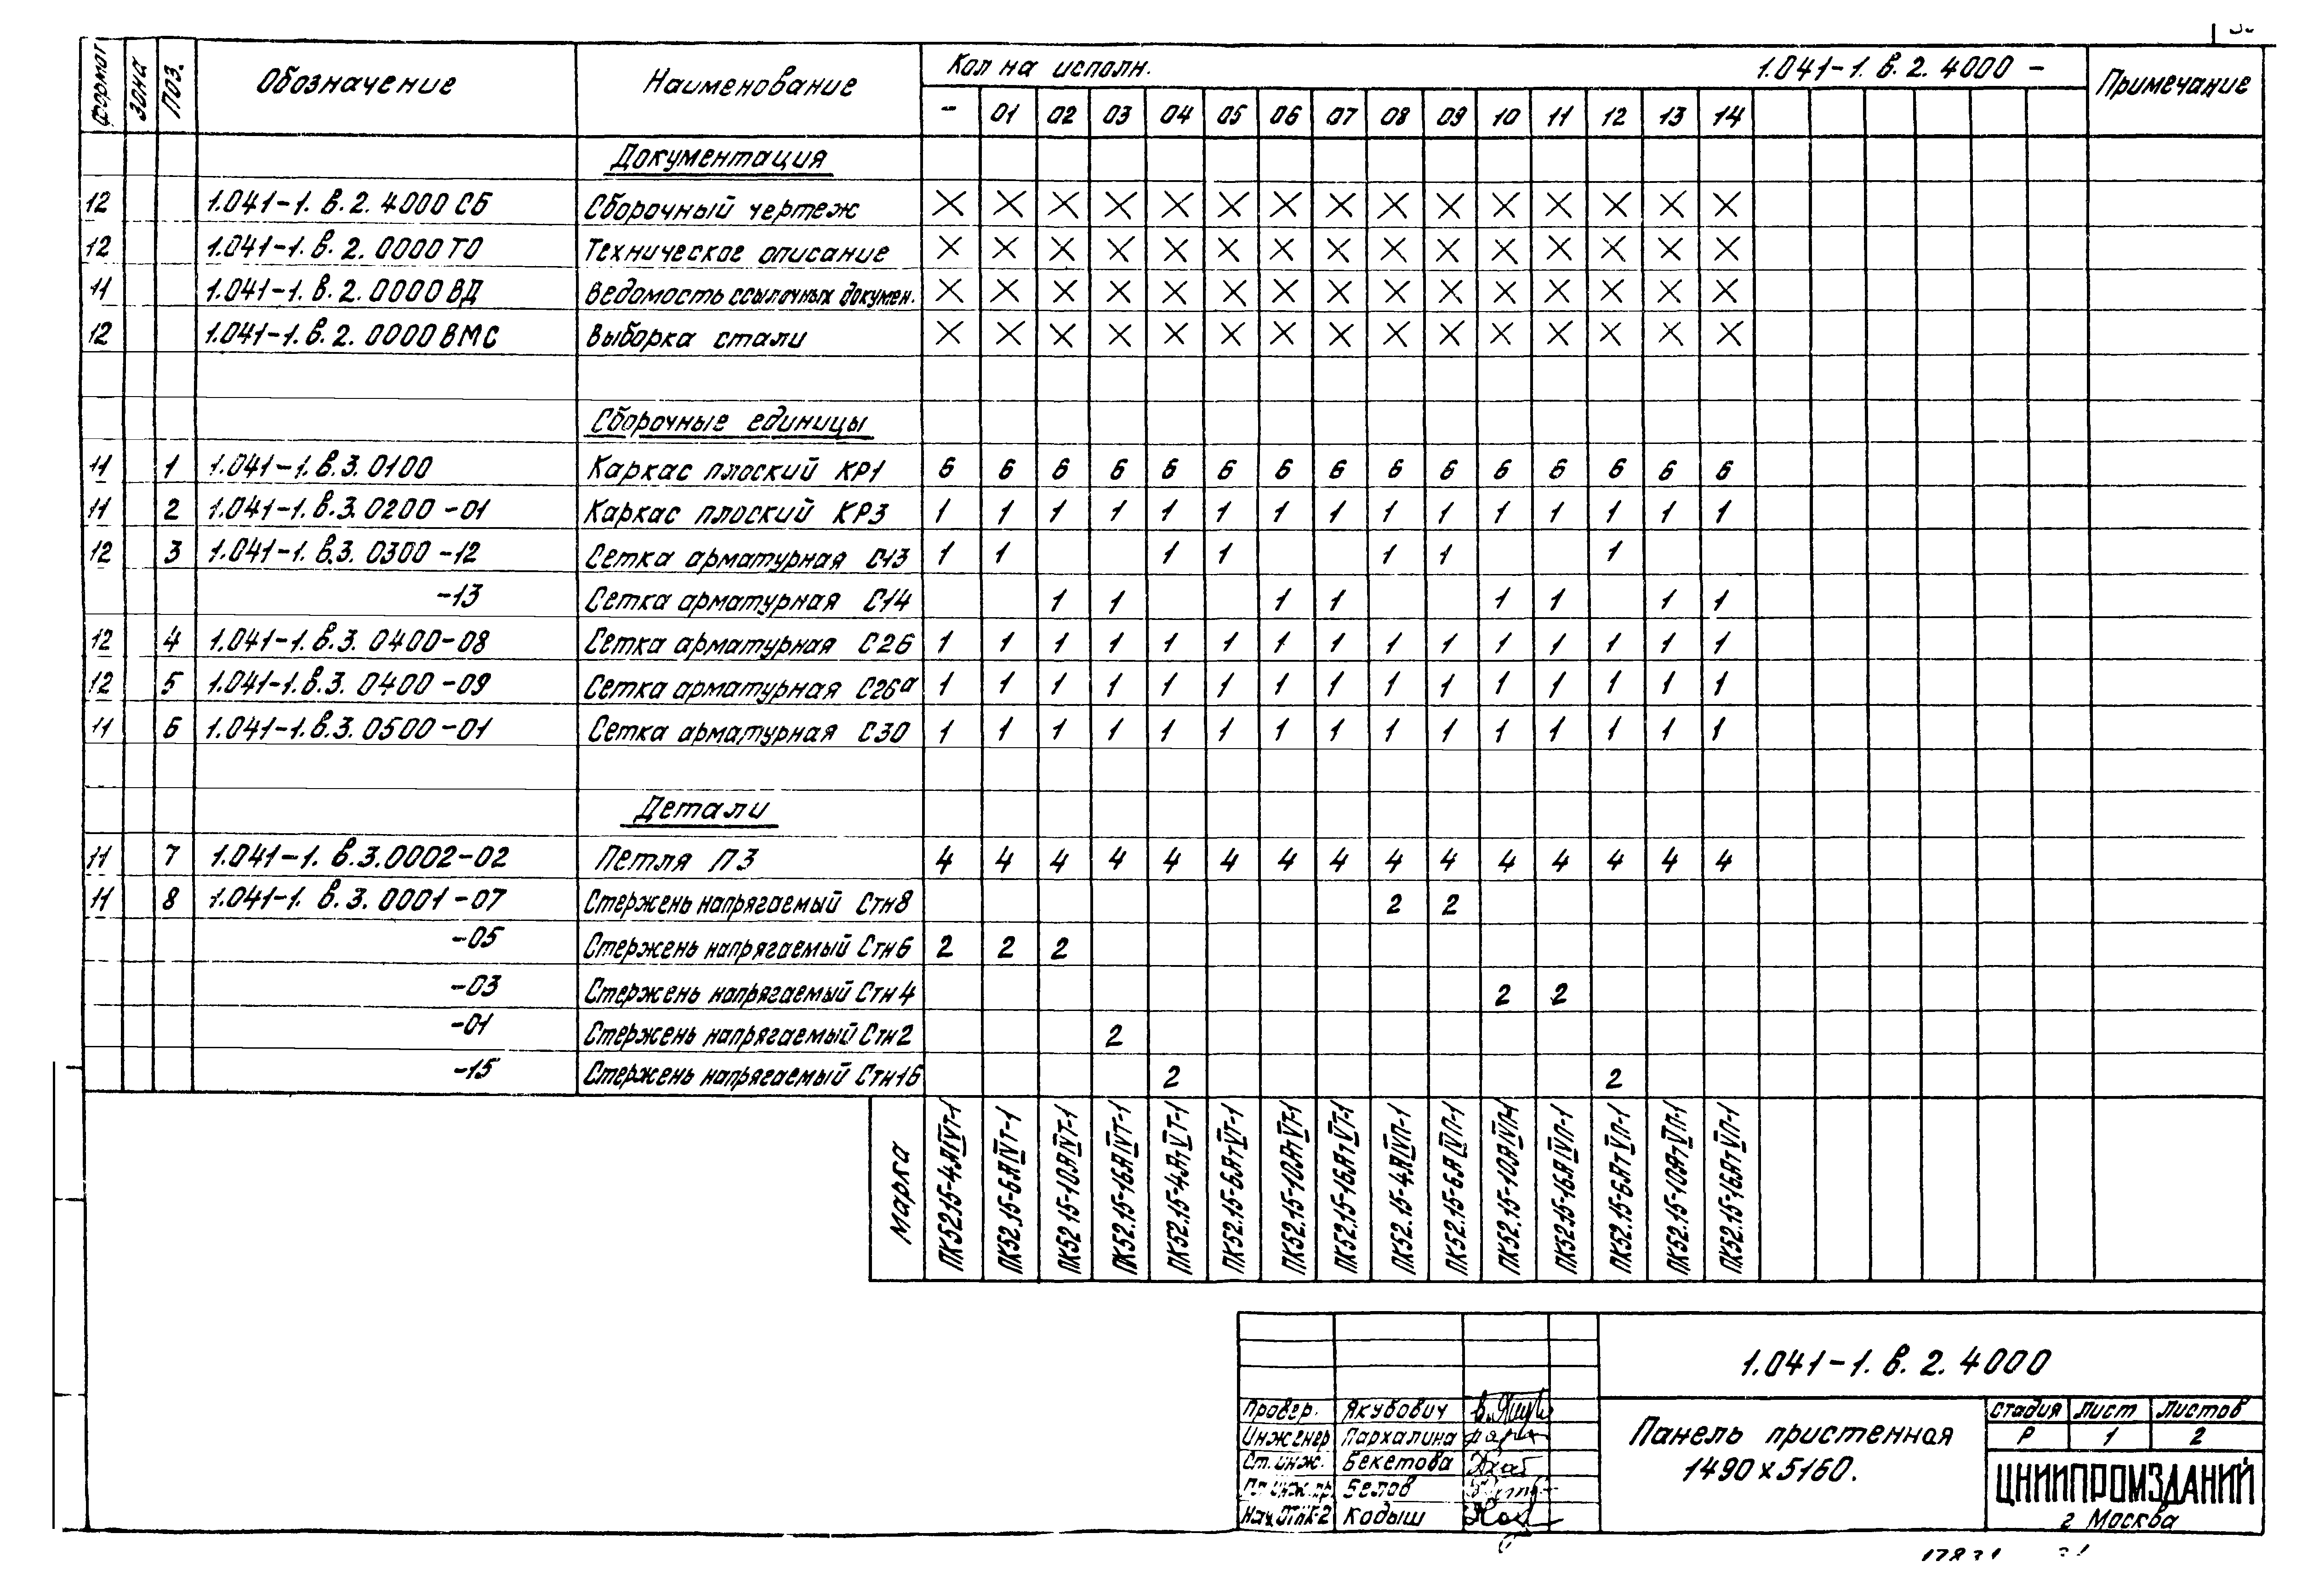 Формат Зона Поз. Обозначение Наименование Кол на исполн. 1.041-1. в. 2. 4000 - Примечание
- 01 02 03 04 05 06 07 08 09 10 11 12 13 14
Документация
12 1.041-1. в. 2. 4000 СБ Сборочный чертеж X X X X X X X X X X X X X X X
12 1.041-1. в. 2. 0000 ТО Техническое описание X X X X X X X X X X X X X X X
11 1.041-1. в. 2. 0000 ВД Ведомость ссылочных докумен. X X X X X X X X X X X X X X X
12 1.041-1. в. 2. 0000 ВМС Выборка стали X X X X X X X X X X X X X X X
Сборочные единицы
11 1 1.041-1. в. 3. 0100 Каркас плоский КР1 6 6 6 6 6 6 6 6 6 6 6 6 6 6 6
11 2 1.041-1. в. 3. 0200 -01 Каркас плоский КР3 1 1 1 1 1 1 1 1 1 1 1 1 1 1 1
12 3 1.041-1. в. 3. 0300 -12 Сетка арматурная С13 1 1 1 1 1 1 1
-13 Сетка арматурная С14 1 1 1 1 1 1 1 1
12 4 1.041-1. в. 3. 0400-08 Сетка арматурная С26 1 1 1 1 1 1 1 1 1 1 1 1 1 1 1
12 5 1.041-1. в. 3. 0400 -09 Сетка арматурная С26а 1 1 1 1 1 1 1 1 1 1 1 1 1 1 1
11 6 1.041-1. в. 3. 0500 -01 Сетка арматурная С30 1 1 1 1 1 1 1 1 1 1 1 1 1 1 1
Детали
11 7 1.041-1. в. 3. 0002-02 Петля П3 4 4 4 4 4 4 4 4 4 4 4 4 4 4 4
11 8 1.041-1. в. 3. 0001 -07 Стержень напрягаемый Стн8 2 2
-05 Стержень напрягаемый Стн6 2 2 2
-03 Стержень напрягаемый Стн4 2 2
-01 Стержень напрягаемый Стн2 2
-15 Стержень напрягаемый Стн16 2 2
Марка
ПК52.15-4АIVТ-1
ПК52.15-6АIVТ-1
ПК52.15-10АIVТ-1
ПК52.15-16АIVТ-1
ПК52.15-4АтVТ-1
ПК52.15-6АтVТ-1
ПК52.15-10АтVТ-1
ПК52.15-16АтVТ-1
ПК52.15-4АIVП-1
ПК52.15-6АIVП-1
ПК52.15-10АIVП-1
ПК52.15-16АIVП-1
ПК52.15-6АтVП-1
ПК52.15-10АтVП-1
ПК52.15-16АтVП-1
1.041-1. в. 2. 4000
Провер. Якубович
Инженер Пархалина
Ст. инж. Бекетова
Гл. инж. пр. Белов
Нач. ОТПК-2 Кодыш
Панель пристенная
1490х5160.
Стадия Лист Листов
Р 1 2
ЦНИИПРОМЗДАНИЙ
г Москва